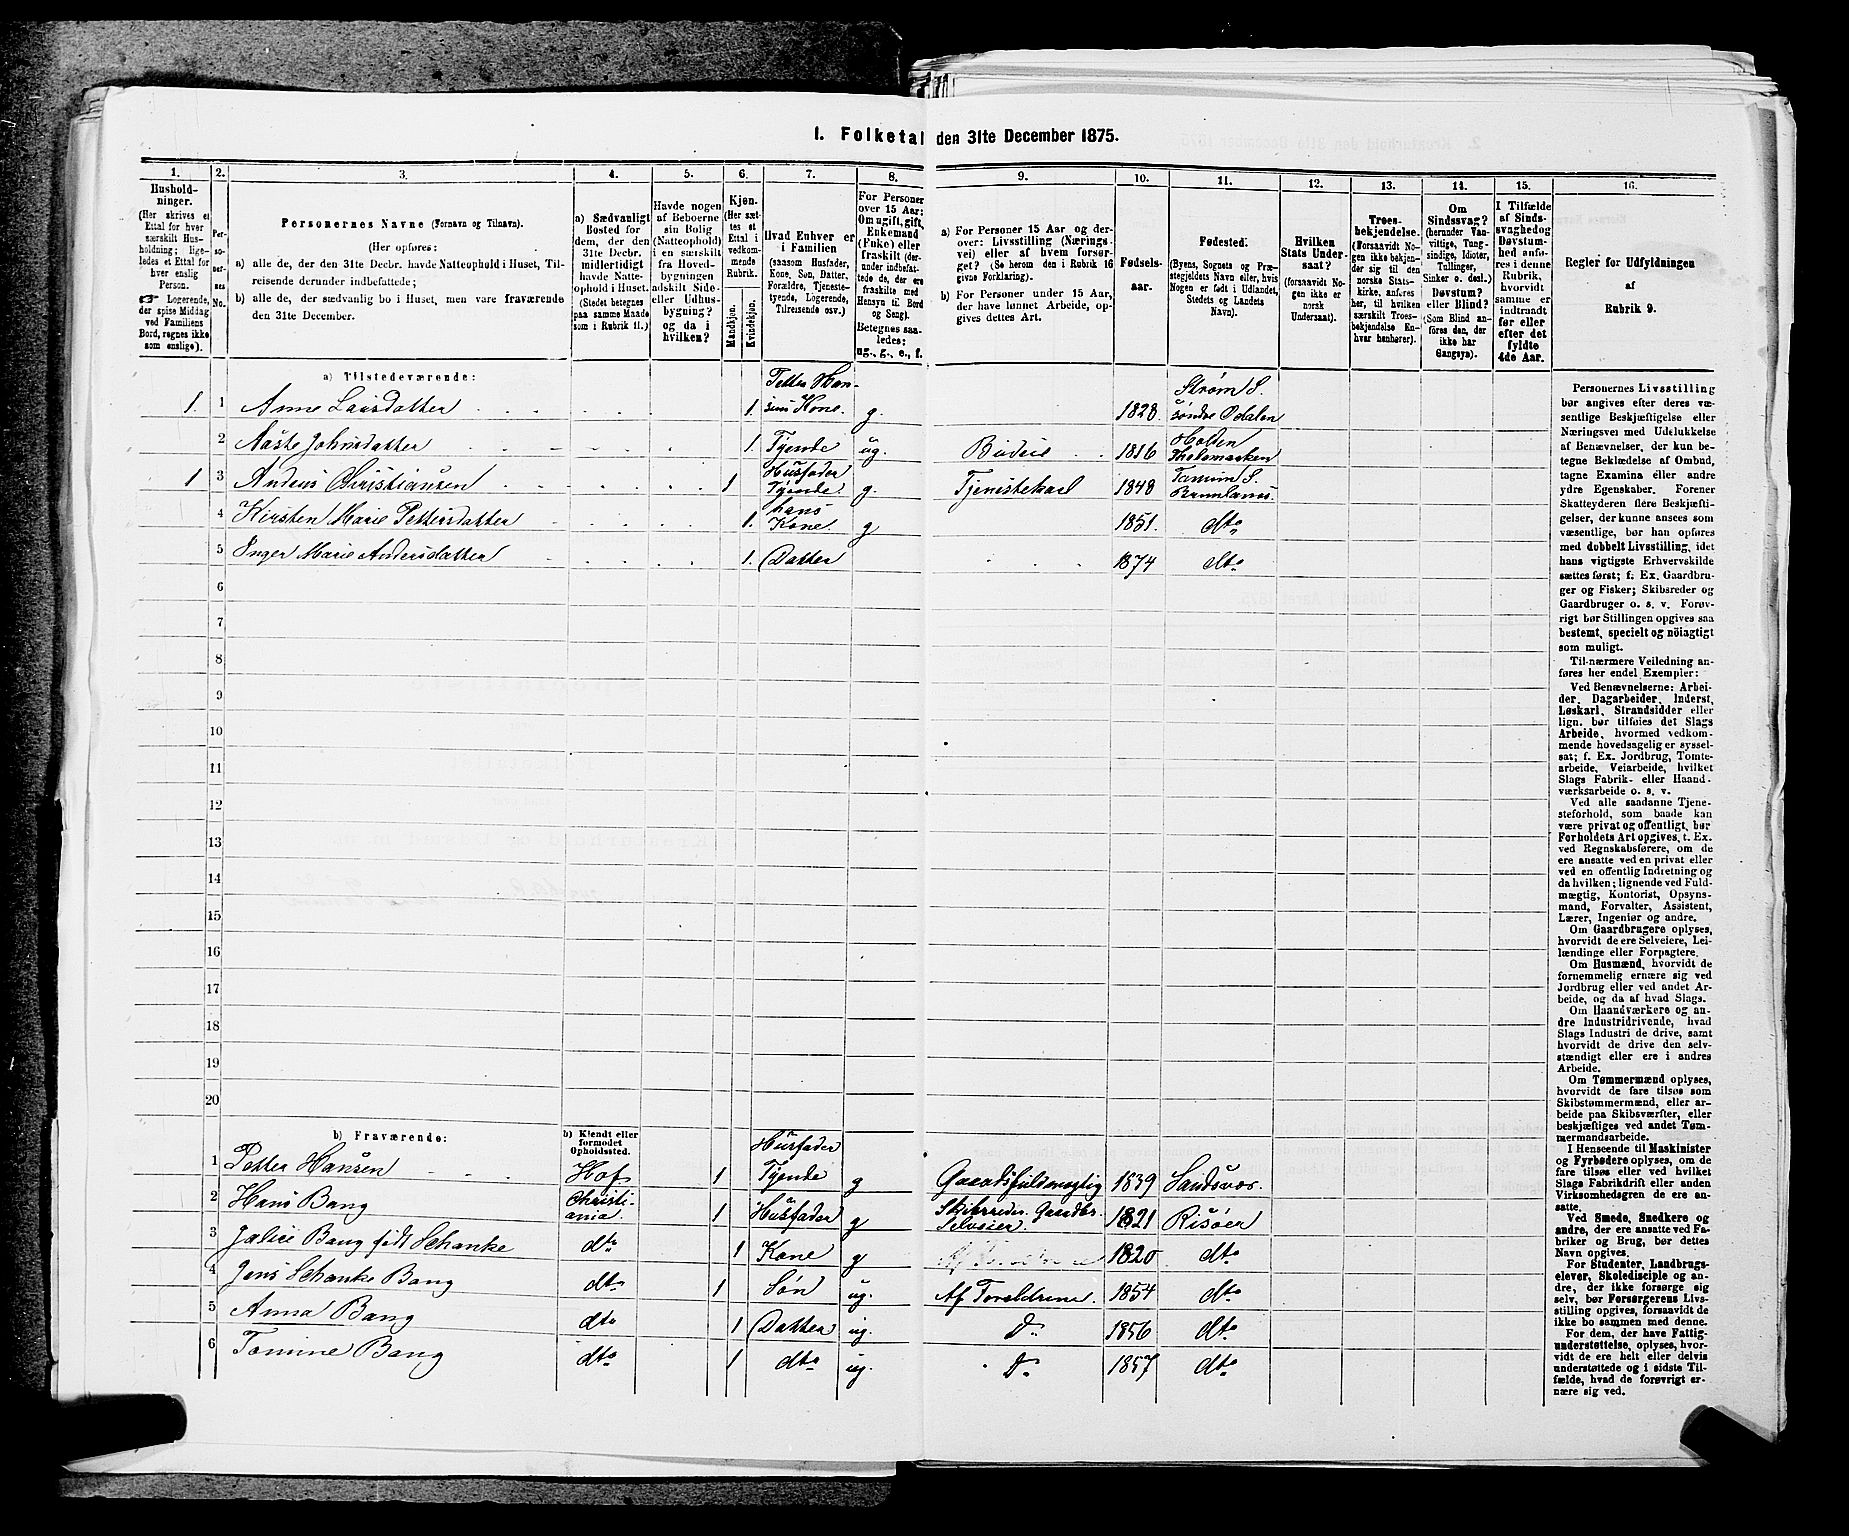 1. Folketal den 31te December 1875.
1. 2. 3. 4. 5. 6. 7. 8. 9. 10. 11. 12. 13. 14. 15. 16.
Husholdninger.
(Her skrives et
Ettal for hver
særskilt Husholdning;
ligeledes et Ettal for
hver enslig
Person.
Logerende,
der spise Middag
ved Familiens
Bord, regnes ikke
som enslige).
Personernes No.
Personernes Navne (Fornavn og Tilnavn).
(Her opføres:
a) alle de, der den 31te Decbr. havde Natteophold i Huset, Tilreisende
derunder indbefattede;
b) alle de, der sædvanlig bo i Huset, men vare fraværende
den 31te December.
a) Sædvanligt
Bosted for
dem, der den
31te Decbr.
midlertidigt
havde Natteophold
i Huset.
(Stedet betegnes
paa samme Maade
som i Rubrik 11.)
Havde nogen
af Beboerne
sin Bolig
(Natteophold)
i en særskilt
fra Hovedbygningen
adskilt Side-
eller Udhusbygning?
og da i
hvilken?
Kjøn.
(Her sættes
et
Ettal i
vedkommende
Rubrik.
Mandkjøn.
Kvindekjøn.
Hvad Enhver er
i Familien
(saasom Husfader,
Kone, Søn, Datter,
Forældre, Tjenestetyende,
Logerende,
Tilreisende osv.)
For Personer
over 15 Aar:
Om ugift, gift,
Enkemand
(Enke) eller
fraskilt (derunder
indbefattede
de, der ere
fraskilte med
Hensyn til Bord
og Seng).
Betegnes saaledes:
ug., g., e., f.
a) For Personer 15 Aar og derover:
Livsstilling (Næringsvei)
eller af hvem forsørget?
(Se herom den i Rubrik 16
givne Forklaring).
b) For Personer under 15 Aar,
der have lønnet Arbeide, opgives
dettes Art.
Fødselsaar.
Fødested.
(Byens, Sognets og Præstegjeldets
Navn eller, hvis
Nogen er født i Udlandet,
Stedets og Landets
Navn).
Hvilken
Stats Undersaat?
(forsaavidt Nogen
ikke er
norsk
Undersaat).
Troesbekjendelse.
(Forsaavidt Nogen
ikke bekjender
sig til den
norske Statskirke,
anføres
her, til hvilken
særskilt Troesbekjendelse
Enhver
henhører).
Om
Sindssvag?
(herunder Vanvittige,
Tungsindige,
Idioter,
Tullinger,
Sinker o. desl.)
Døvstum?
eller Blind?
(Som Blind anføres
den, der
ikke har
Gangsyn).
I Tilfælde
af Sindssvaghed
og
Døvstumhed
anføres
i denne
Rubrik,
hvorvidt
samme er
indtraadt
før eller
efter det
fyldte
4de Aar.
Regler for Udfyldningen
af
Rubrik 9.
a) Tilstedeværende:
1. 1 Anne Larsdatter 1. Petter Hansens Kone. g. 1828 Strøm S. søndre Odalen
2 Aaste Johnsdatter 1. Tyende ug. Budeie 1816 Holden Thelemarken
1 3 Anders Christiansen 1 Husfader Tyende. g. Tjenistekarl 1848 Tanum S. Brunlanæs
4 Kirsten Marie Pettersdatter 1. hans Kone. g 1851. dto
5 Inger Marie Andersdatter 1. Datter 1874 dto
6
7
8
9
10
11
12
13
14
15
16
17
18
19
20
b) Fraværende:
b) Kjendt eller
formodet
Opholdssted.
1 Petter Hansen Hof 1 Husfader Tyende g Gaardsfuldmægtig 1839 Sandsvær.
2 Hans Bang Christiania. 1 Husfader g Skibsreder. Gaardbr. Selveier. 1821 Risøer
3 Jalice Bang født Schanke dto 1 Kone g 1820 dto
4 Jens Schanke Bang dto 1 Søn ug. Af Foreldrene. 1854 dto
5 Anna Bang dto 1 Datter ug. Do 1856 dto
6 Tomine Bang dto 1 dto ug. Do 1857 dto
Personernes Livsstilling
bør angives efter deres væsentlige
Beskjæftigelse eller
Næringsvei med Udelukkelse
af Benævnelser, der kun betegne
Beklædelse af Ombud,
tagne Examina eller andre
ydre Egenskaber. Forener
Skatteyderen flere Beskjæftigelser,
der kunne ansees som
væsentlige, bør han opføres
med dobbelt Livsstilling, idet
hans vigtigste Erhvervskilde
sættes først; f. Ex. Gaardbruger
og Fisker; Skibsreder og
Gaardbruger o. s. v. Forøvrigt
bør Stillingen opgives saa
bestemt, specielt og nöiagtigt
som muligt.
Til nærmere Veiledning anføres
her endel Exempler:
Ved Benævnelserne: Arbeider,
Dagarbeider, Inderst,
Løskarl, Strandsidder eller
lign. bør tilføies det Slags
Arbeide, hvormed vedkommende
hovedsagelig er sysselsat;
f. Ex. Jordbrug, Tomtearbeide,
Veiarbeide, hvilket
Slags Fabrik- eller Haandværksarbeide
o. s. v.
Ved alle saadanne Tjenesteforhold,
som baade kan
være privat og offentligt, bør
Forholdets Art opgives, t. Ex.
ved Regnskabsførere, om de
ere ansatte ved en privat eller
ved en offentlig Indretning og
da hvilken; lignende ved Fuldmægtig,
Kontorist, Opsynsmand,
Forvalter, Assistent,
Lærer, Ingeniør og andre.
Om Gaardbrugere oplyses,
hvorvidt de ere Selveiere, Leilændinge
eller Forpagtere.
Om Husmænd, hvorvidt de
fornemmelig ernære sig ved
Jordbrug eller ved andet Arbeide,
og da af hvad Slags.
Om Haandværkere og andre
Industridrivende, hvad
Slags Industri de drive, samt
hvorvidt de drive den selvstændigt
eller ere i andres
Arbeide.
Om Tømmermænd oplyses,
hvorvidt de fare tilsøs som
Skibstømmermænd, eller arbeide
paa Skibsværfter, eller
beskjæftiges ved andet Tømmermandsarbeide.
I Henseende til Maskinister
og Fyrbødere oplyses, om de
fare tilsøs eller ved hvilket
Slags Fabrikdrift eller anden
Virksomhedsgren de ere ansatte.
Ved Smede, Snedkere og
andre, der ere ansatte ved Fabriker
og Brug, bør dettes
Navn opgives.
For Studenter, Landbrugselever,
Skoledisciple og andre,
der ikke forsørge sig
selv, bør Forsørgerens Livsstilling
opgives, forsaavidt de
ikke bo sammen med denne.
For dem, der have Fattigunderstøttelse,
oplyses, hvorvidt
de ere helt eller delvis
understøttede og i sidste Tilfælde,
hvad de forøvrigt ernære
sig ved.